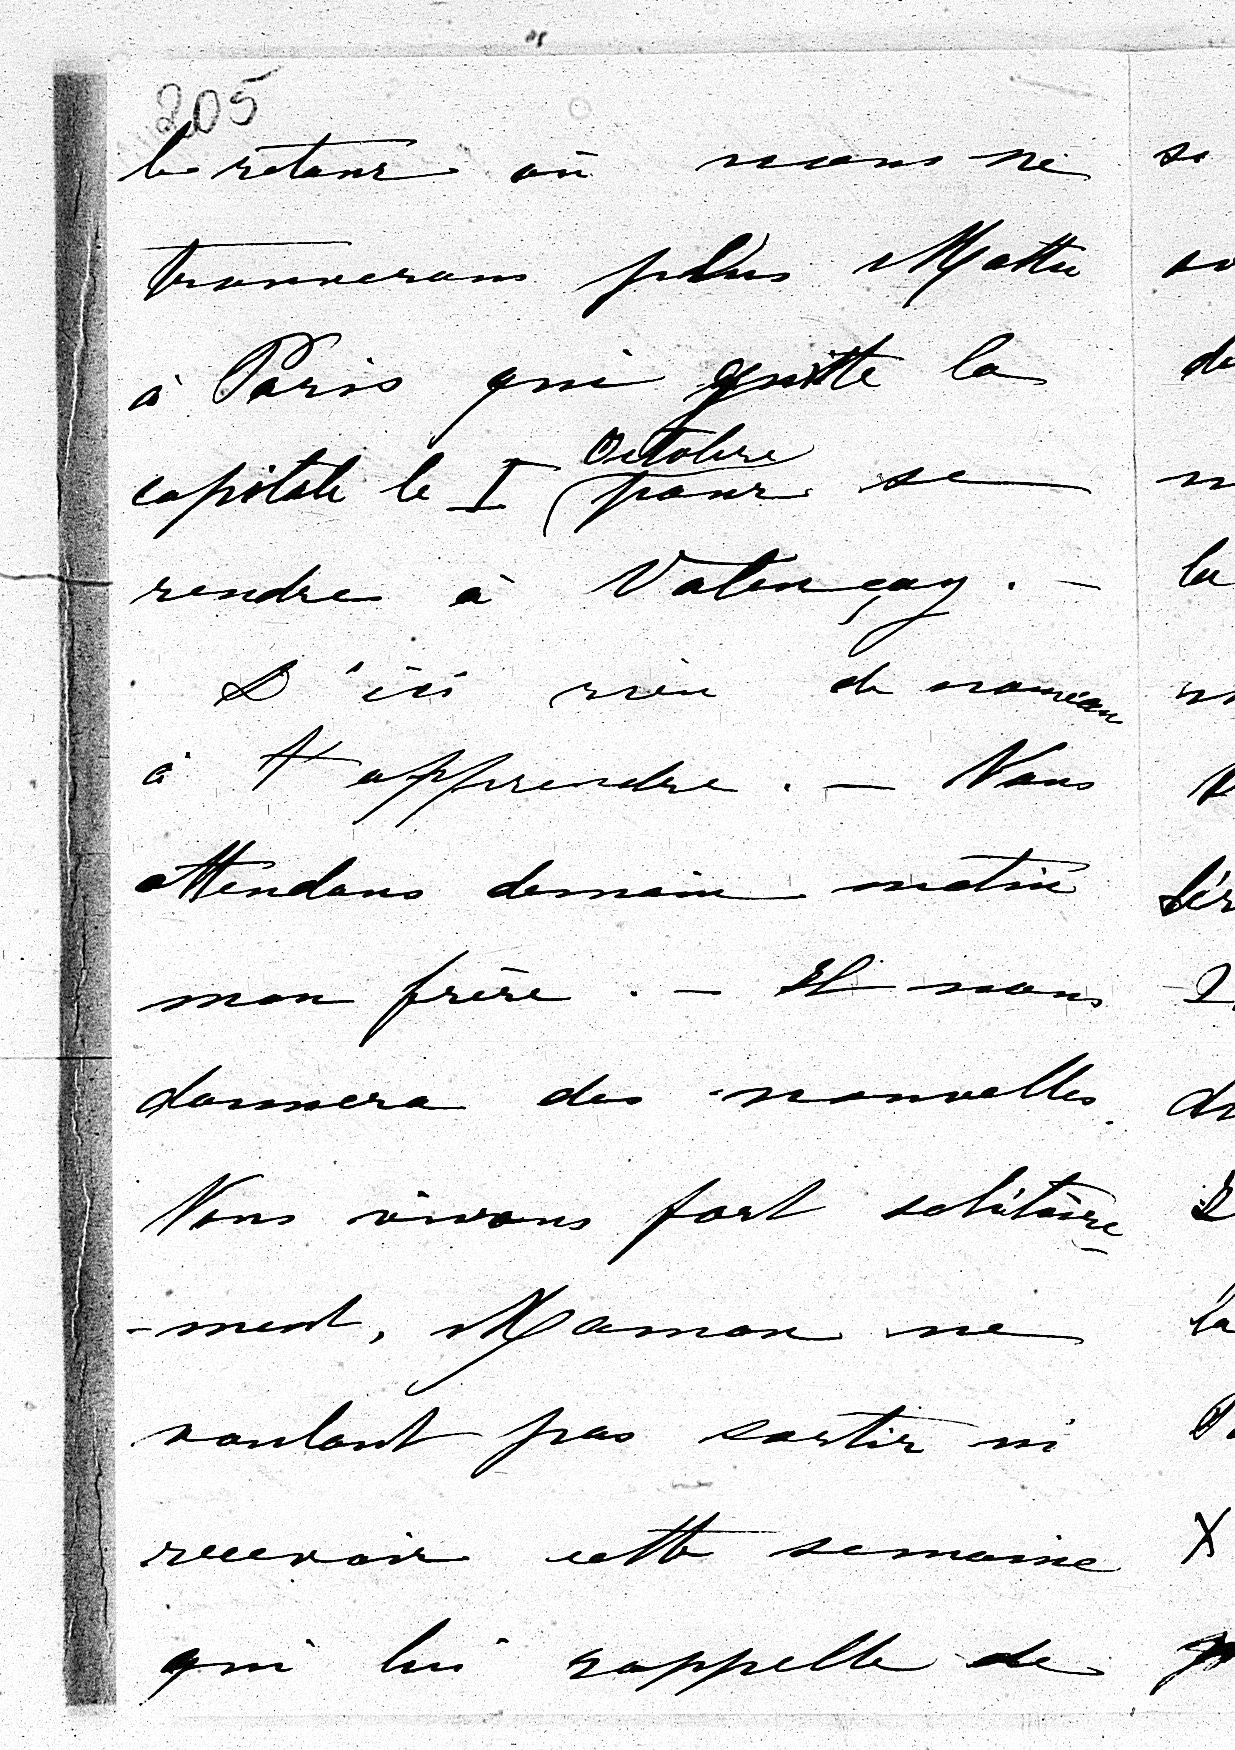 205
le retour où nous ne
trouverons plus Mattie
à Paris qui quitte la
capitale le I Octobre
pour se
rendre à Valençay. -
D'ici rien de nouveau
à t'apprendre. - Nous
attendons demain matin
mon frère. - Il nous
donnera des nouvelles.
Nous vivons fort solitaire-
-ment, Maman ne
voulant pas sortir ni
recevoir cette semaine
qui lui rappelle de